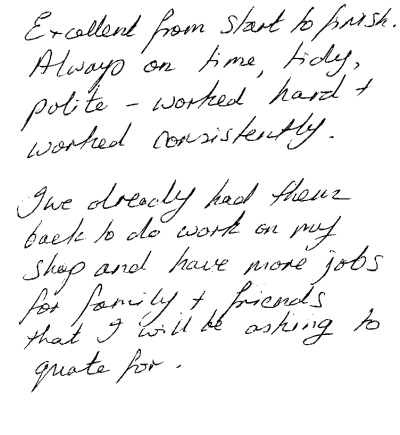 Excellent from start to finish.
Always on time, tidy,
polite - worked hard +
worked consistently.
I've already had them
back to do work on my
shop and have more jobs
for family + friends
that I will be asking to
quote for.